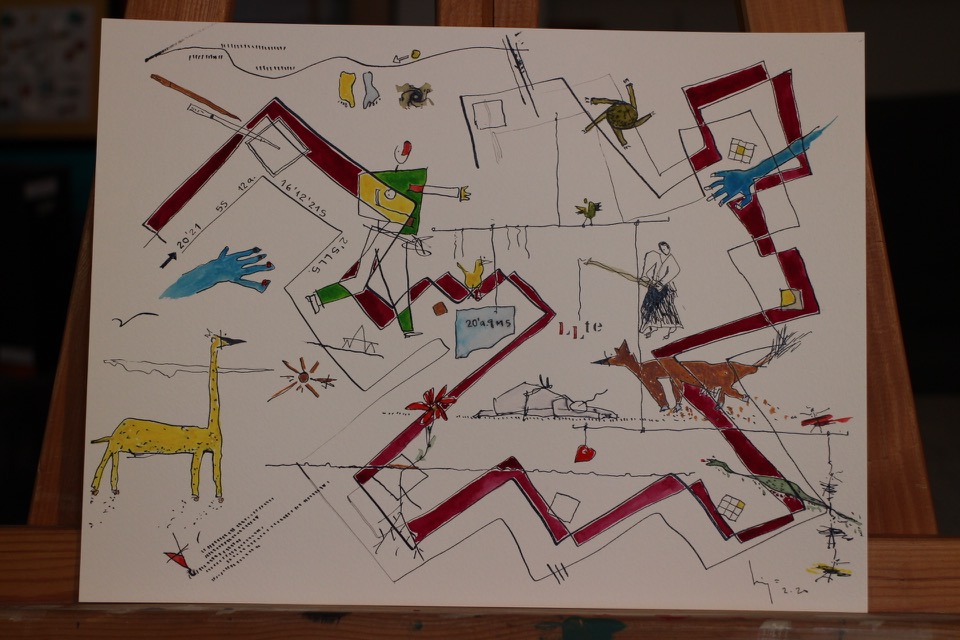 20'21 5S 12a. 16'12'21S
2'SLLS.
20'a.9m5
LLte
2.20